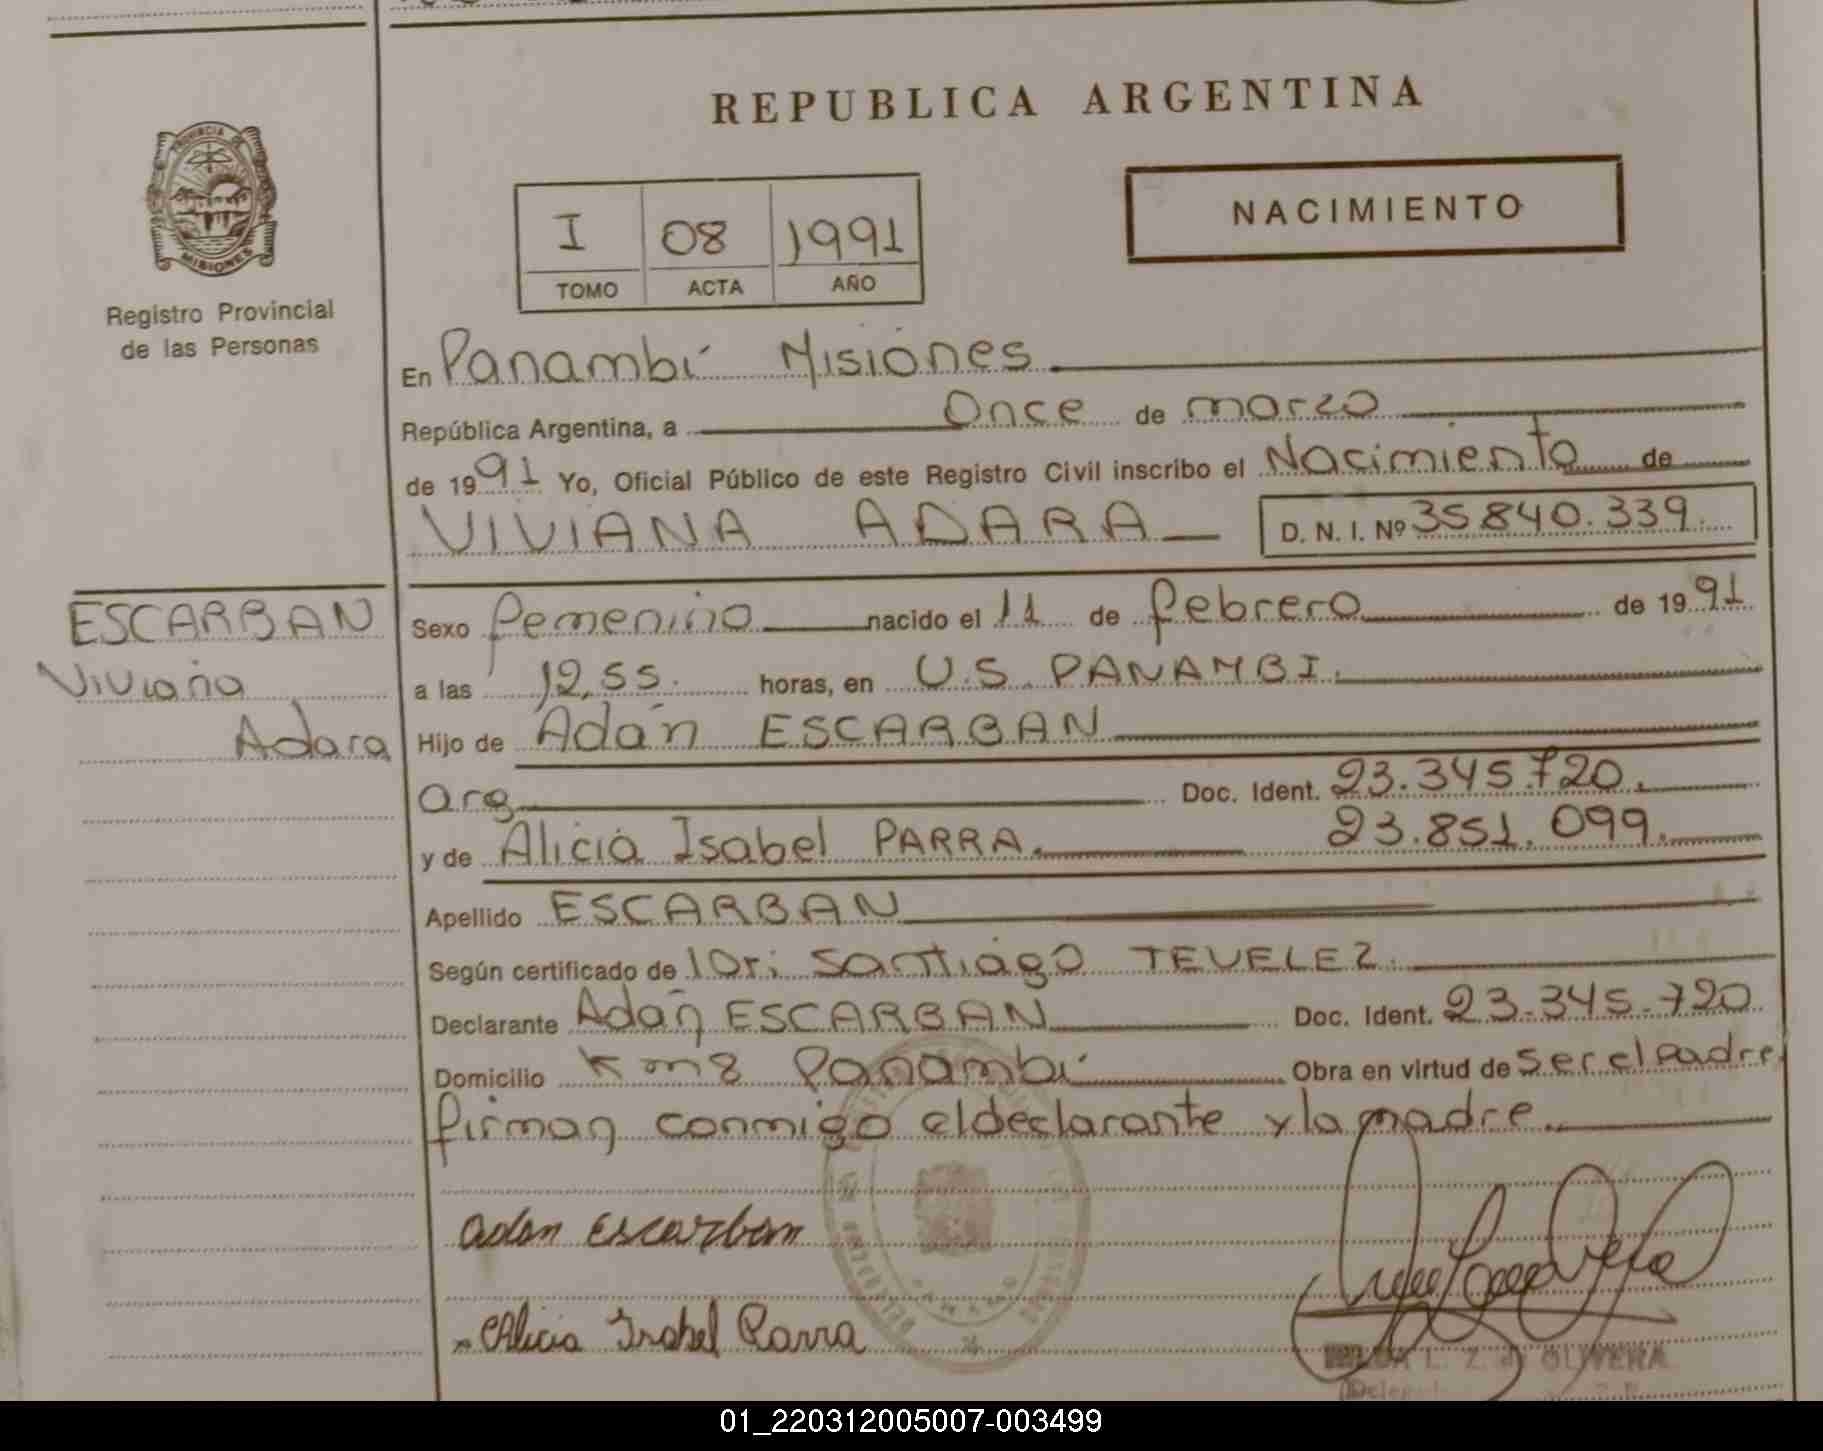 REPUBLICA ARGENTINA
PROVINCIA DE
MISIONES
Registro Provincial
de las Personas
I 08 1991
TOMO ACTA AÑO
NACIMIENTO
En Panambí Misiones
República Argentina, a Once de marzo
de 1991 Yo, Oficial Público de este Registro Civil inscribo el Nacimiento de
VIVIANA ADARA D. N. I. Nº 35840.339.
ESCARBAN
Viviana
Adara
Sexo femenino nacido el 11 de febrero de 1991
a las 12,55. horas, en U.S. PANAMBI.
Hijo de Adán ESCARBAN
arg Doc. Ident. 23.345.720.
y de Alicia Isabel PARRA. 23.851.099.
Apellido ESCARBAN
Según certificado de Santiago TEVELEZ.
Declarante Adán ESCARBAN Doc. Ident. 23.345.720.
Domicilio Km 8 Panambí Obra en virtud de ser el padre,
firman conmigo el declarante y la madre.
adan Escarban
Alicia Isabel Parra
L. Z. de OLIVERA
01_220312005007-003499